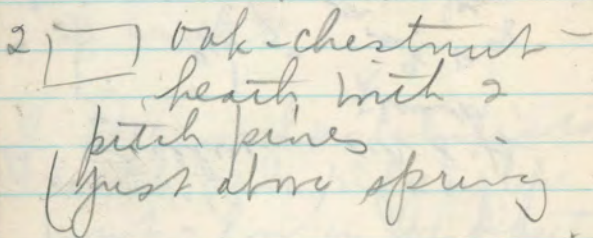 2 oak-chestnut-
heath with 2
pitch pines
(just above spring